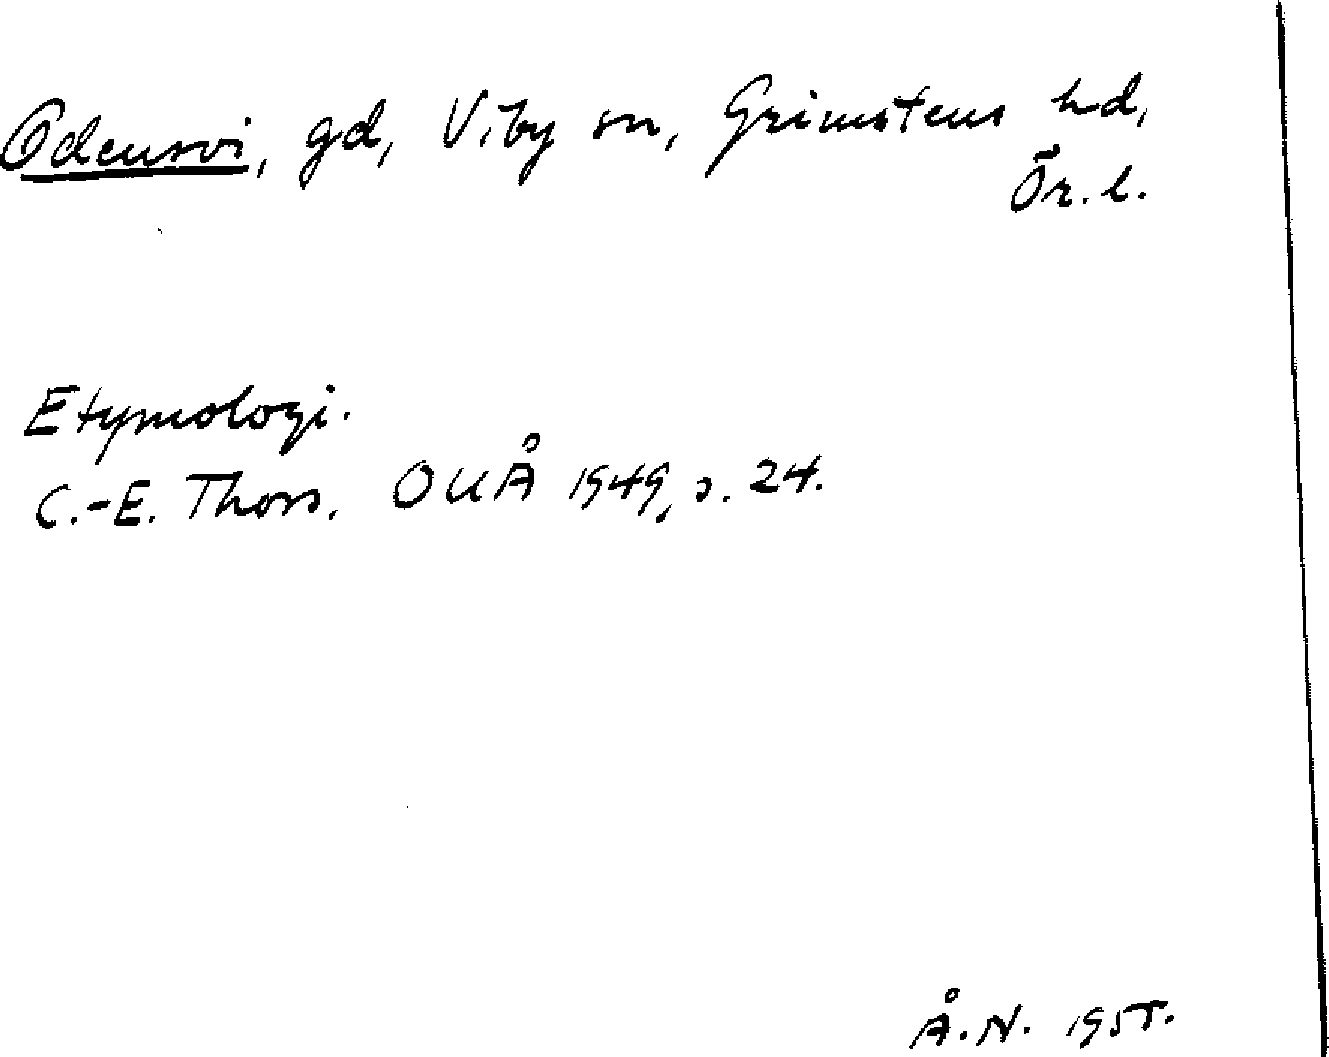 Odensvi, gd, Viby sn, Grimstens hd,
Ör. l.
Etymologi.
C.-E. Thors. OUÅ 1949, s. 24.
Å.N. 1955.